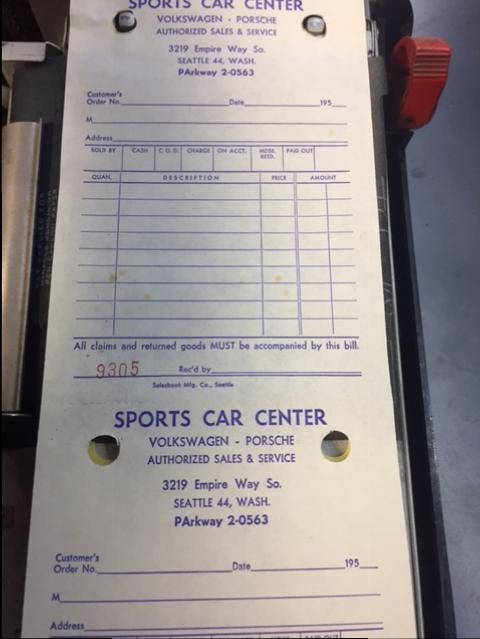 SPORTS CAR CENTER
VOLKSWAGEN - PORSCHE
AUTHORIZED SALES & SERVICE
3219 Empire Way So.
SEATTLE 44, WASH.
PArkway 2-0563
Customer's
Order No. Date 195
M
Address
SOLD BY CASH C.O.D. CHARGE ON ACCT. MDSE. RETD. PAID OUT
QUAN. DESCRIPTION PRICE AMOUNT
All claims and returned goods MUST be accompanied by this bill.
9305 Rec'd by
Salesbook Mfg. Co., Seattle
SPORTS CAR CENTER
VOLKSWAGEN - PORSCHE
AUTHORIZED SALES & SERVICE
3219 Empire Way So.
SEATTLE 44, WASH.
PArkway 2-0563
Customer's
Order No. Date 195
M
Address
PAID OUT